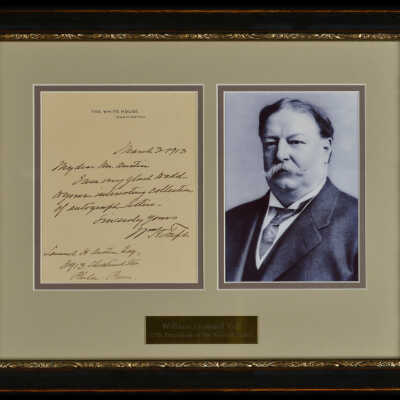 THE WHITE HOUSE
WASHINGTON
March 2 1913
My dear Mr. Austin
I am very glad to add
to your interesting collection
of autograph letters.
Sincerely yours
Wm H Taft
Samuel H Austin Esq.
Phila Penn.
William Howard Taft
27th President of the United States